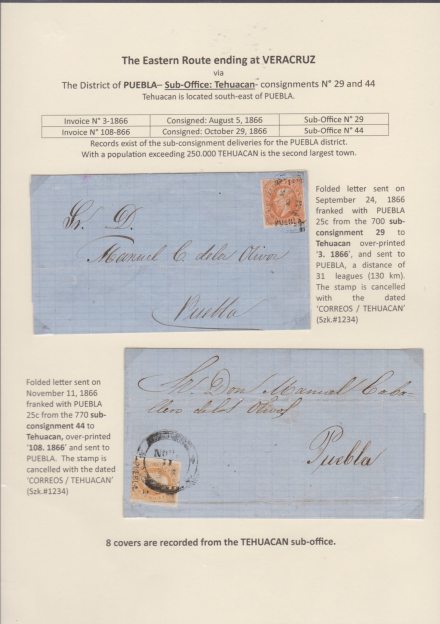 The Eastern Route ending at VERACRUZ
via
The District of PUEBLA– Sub-Office: Tehuacan- consignments N° 29 and 44
Tehuacan is located south-east of PUEBLA.
Invoice N° 3-1866 Consigned: August 5, 1866 Sub-Office N° 29
Invoice N° 108-866 Consigned: October 29, 1866 Sub-Office N° 44
Records exist of the sub-consignment deliveries for the PUEBLA district.
With a population exceeding 250.000 TEHUACAN is the second largest town.
Folded letter sent on
September 24, 1866
franked with PUEBLA
25c from the 700 sub-
consignment 29 to
Tehuacan over-printed
'3. 1866', and sent to
PUEBLA, a distance of
31 leagues (130 km).
The stamp is cancelled
with the dated
'CORREOS / TEHUACAN'
(Szk.#1234)
PUEBLA
Sr. D.
Manuel C. de los Olivos
Puebla
Folded letter sent on
November 11, 1866
franked with PUEBLA
25c from the 770 sub-
consignment 44 to
Tehuacan, over-printed
'108. 1866' and sent to
PUEBLA. The stamp is
cancelled with the dated
'CORREOS / TEHUACAN'
(Szk.#1234)
Sr. Don Manuel Caba-
llero de los Olivos
Puebla
NOV
11
8 covers are recorded from the TEHUACAN sub-office.